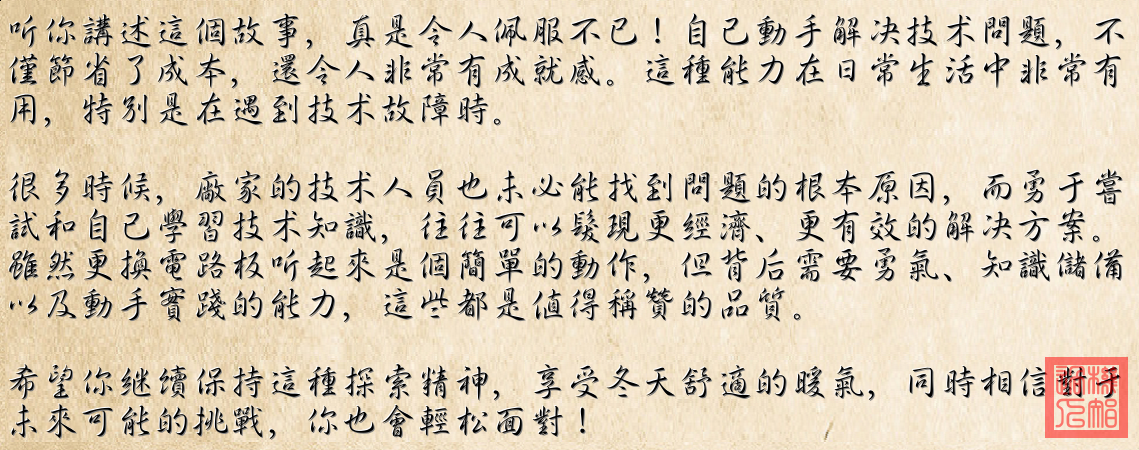 听你講述這個故事，真是令人佩服不已！自己動手解决技术問題，不
僅節省了成本，還令人非常有成就感。這種能力在日常生活中非常有
用，特別是在遇到技术故障時。
很多時候，廠家的技术人員也未必能找到問題的根本原因，而勇于嘗
試和自己學習技术知識，往往可以髮現更經濟、更有效的解决方案。
雖然更換電路板听起來是個簡單的動作，但背后需要勇氣、知識儲備
以及動手實踐的能力，這些都是值得稱贊的品質。
希望你继續保持這種探索精神，享受冬天舒適的暖氣，同時相信對于
未來可能的挑戰，你也會輕松面對！